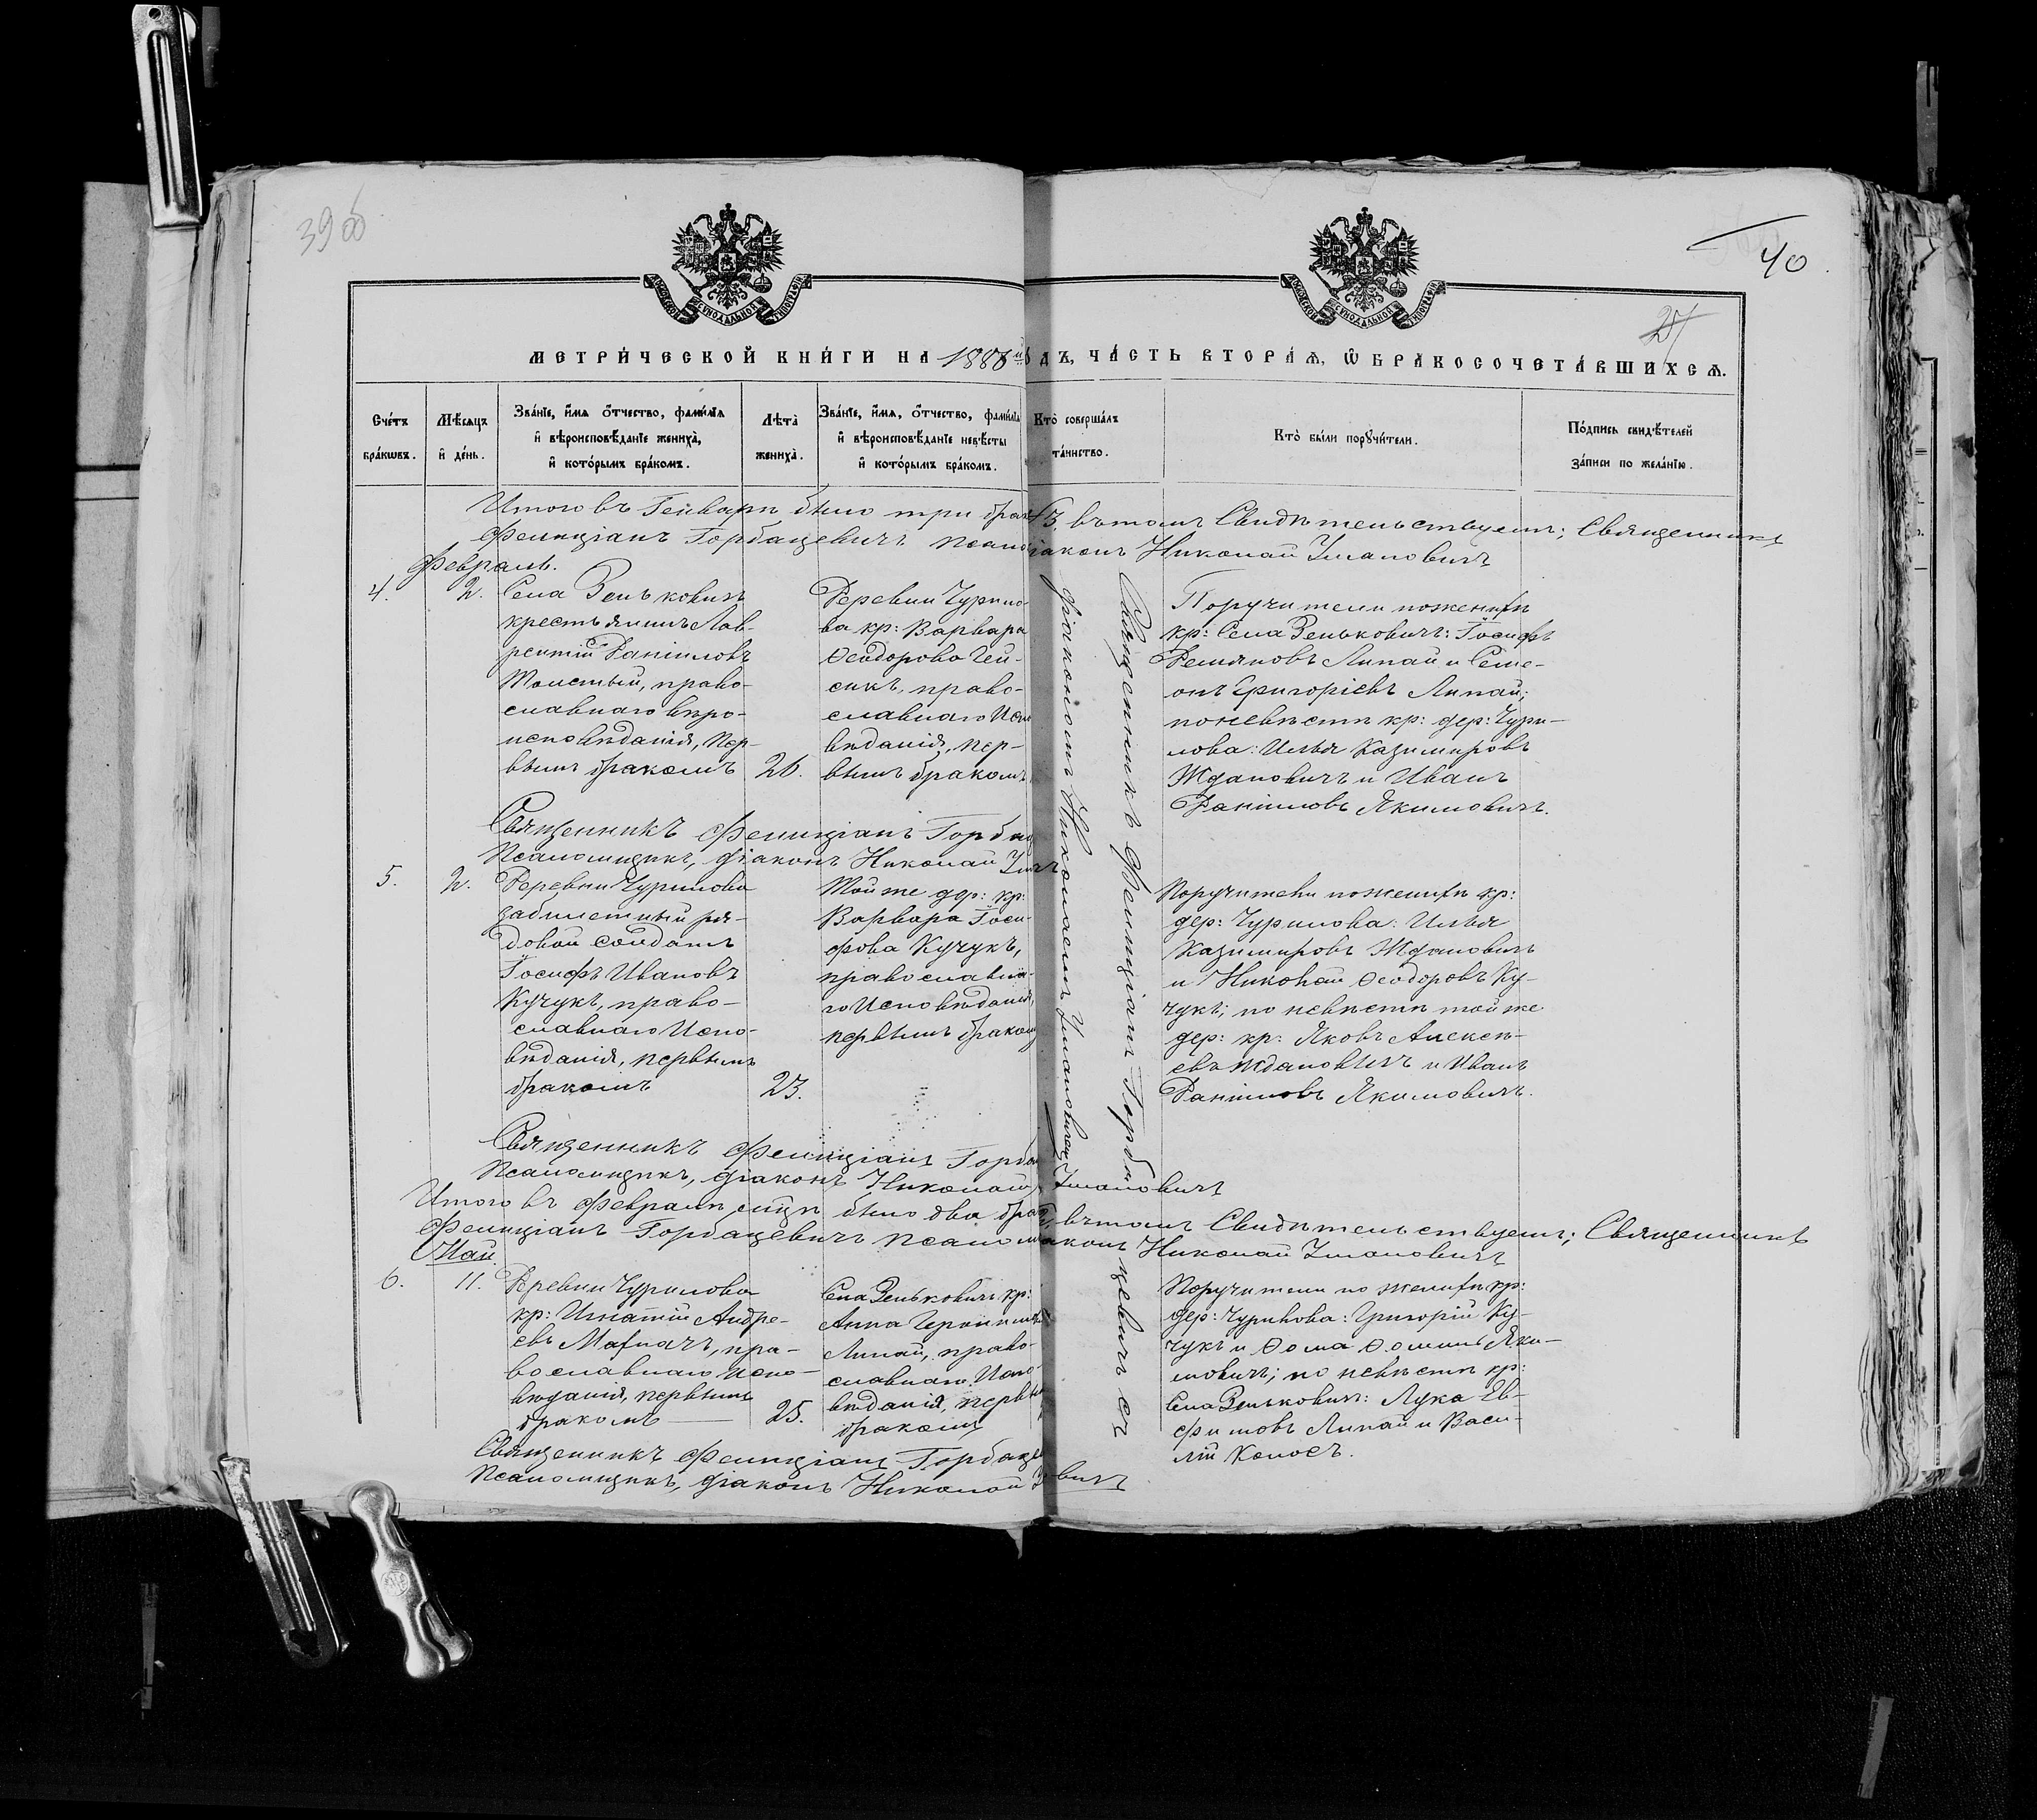 39 об
40
27
МЕТРИ́ЧЕСКОЙ КНИ́ГИ НА 1886й ГОДЪ, ЧА́СТЬ ВТОРА́Я, Ѡ БРАКОСОЧЕТА́ВШИХСѦ.
Сче́тъ бра́кѡвъ.
Мѣ́сяцъ и де́нь.
Зва́нїе, и́мя о́тчество, фами́лїя и вѣроисповѣ́данїе жениха̀, и кото́рымъ бра́комъ.
Лѣ́та жениха̀.
Зва́нїе, и́мя, о́тчество, фами́лїя и вѣроисповѣ́данїе невѣ́сты и кото́рымъ бра́комъ.
Кто̀ соверша́лъ та́инство.
Кто̀ бы́ли порꙋчи́тели.
По́дпись свидѣ́телей за́писи по жела́нїю.
Итого въ Генварѣ было три брак 3, въ томъ Свидѣтельствуемъ; Священникъ
Фелиціанъ Горбацевичъ Псало діаконъ Николай Умановичъ
Февраль.
4.
2.
Села Зеньковичъ
крестьянинъ Лав-
рентій Даніиловъ
Толстый, право-
славнаго вѣро-
исповѣданія, пер-
вымъ бракомъ
26.
Деревни Чурило-
ва кр: Варвара
Ѳеодорова Гей-
сикъ, право-
славнаго Испо
вѣданія, пер-
вымъ бракомъ
Поручители по женихѣ
кр: Села Зеньковичъ: Іосифъ
Демяновъ Липай и Семе-
онъ Григоріевъ Липай;
по невѣстѣ кр: дер: Чури-
лова: Илья Казимировъ
Ждановичъ и Иванъ
Даніиловъ Якимовичъ.
Священникъ Фелиціанъ Горбац
Псаломщикъ, діаконъ Николай Ум
5.
2.
Деревни Чурилова
забилетный ря-
довой Солдатъ
Іосифъ Ивановъ
Кучукъ, право-
славнаго Испо-
вѣданія, первымъ
бракомъ
23.
Той же дер: кр:
Варвара Іоси-
фова Кучукъ,
православна-
го Исповѣданія,
первымъ бракомъ
Поручители по женихѣ кр:
дер: Чурилова: Илья
Казимировъ Ждановичъ
и Николай Ѳеодоровъ Ку-
чукъ; по невѣстѣ той же
дер: кр: Яковъ Алексѣ-
евъ Ждановичъ и Иванъ
Даніиловъ Якимовичъ.
Священникъ Фелиціанъ Горба
Псаломщикъ, діаконъ Николай Умановичъ
Итого въ Февралѣ мцѣ было два брак 2, въ томъ Свидѣтельствуемъ; Священникъ
Фелиціанъ Горбацевичъ Псалом діаконъ Николай Умановичъ
Май.
6.
11.
Деревни Чурилова
кр: Игнатій Андре-
евъ Махначъ, пра-
вославнаго Испо-
вѣданія, первымъ
бракомъ
25.
Села Зеньковичъ кр:
Анна
Липай, право-
славнаго Испо-
вѣданія, первым
бракомъ
Поручители по женихѣ кр:
дер: Чурилова: Григорій Ку-
чукъ и Ѳома Ѳоминъ Яки-
мовичъ; по невѣстѣ кр:
Села Зеньковичъ: Лука Ев-
фимовъ Липай и Васи-
лій Колосъ.
Священникъ Фелиціанъ Горбаце
Псаломщикъ, діаконъ Николай вичъ
Священникъ Фелиціанъ Горбацевичъ съ
діакономъ Николаемъ Умановичемъ